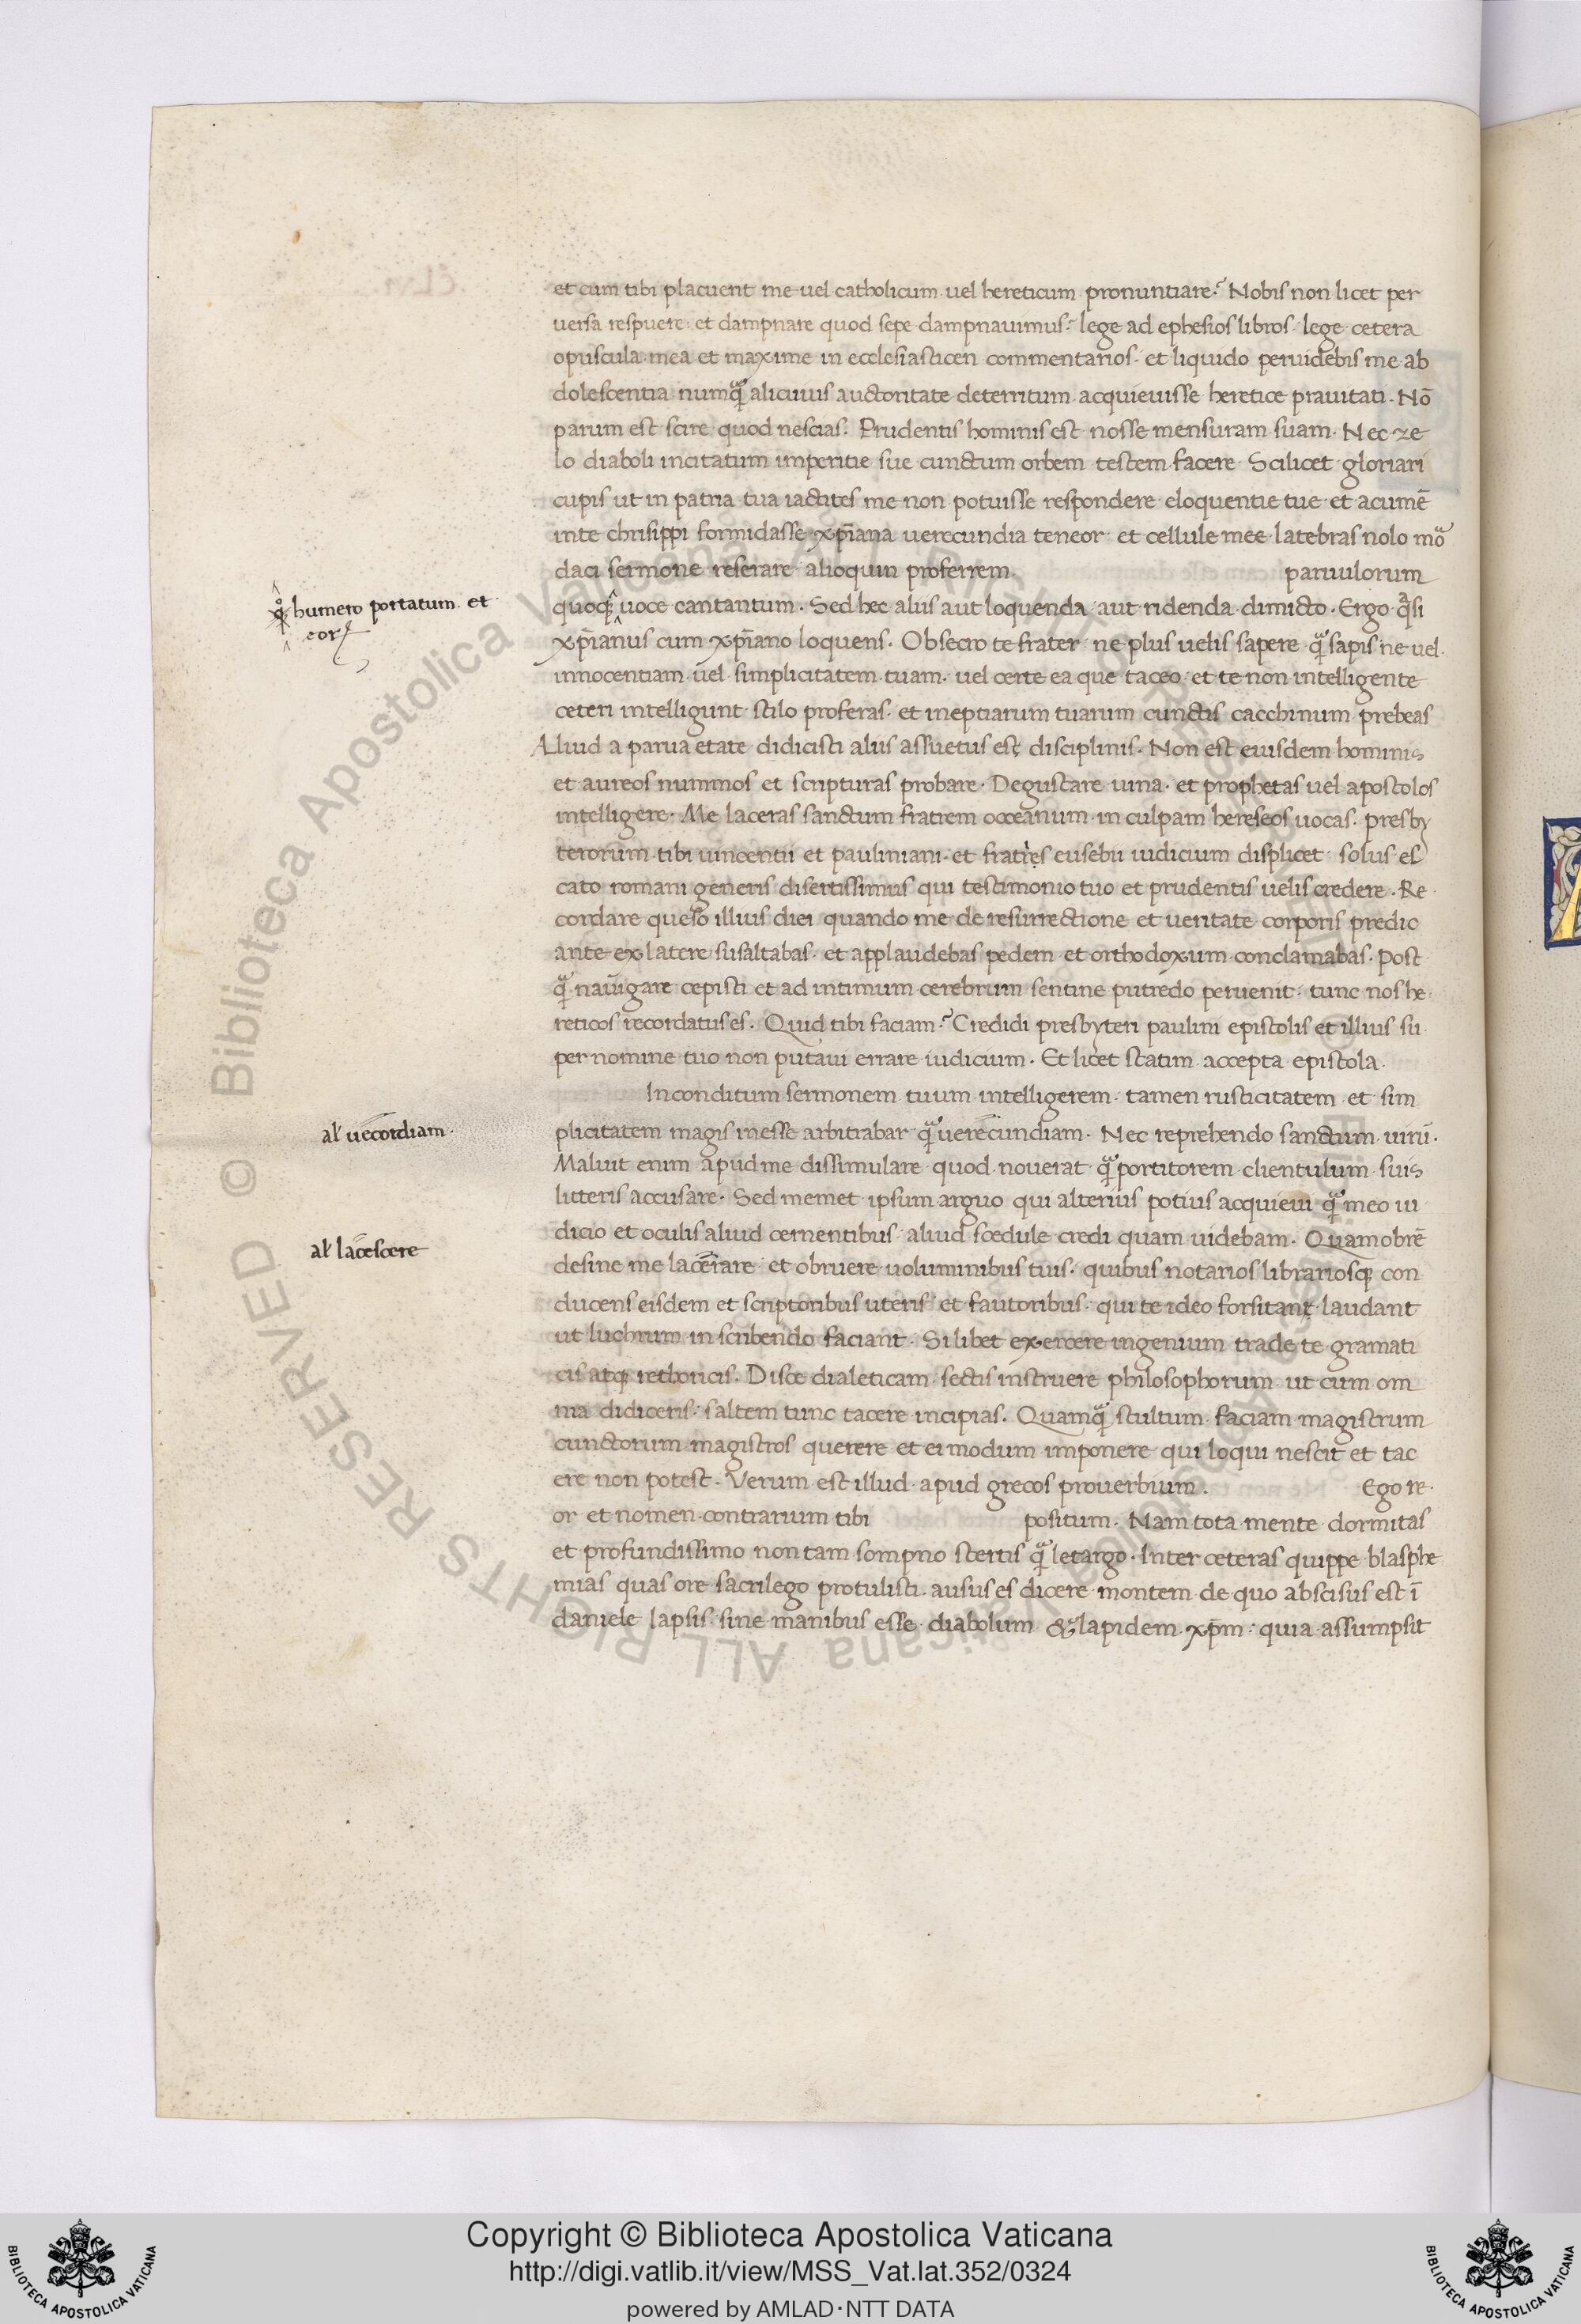 et cum tibi placuerit me uel catholicum uel hereticum pronuntiare? Nobis non licet per
uersa respuere et dampnare quod sepe dampnauimus? lege ad ephesios libros lege cetera
opuscula mea et maxime in ecclesiasticen commentarios et liquido peruidebis me ab
dolescentia numq̃ alicuius auctoritate deterritum acquieuisse heretice prauitati. Nō
parum est scire quod nescias. Prudentis hominis est nosse mensuram suam. Nec ze
lo diaboli incitatum imperitie sue cunctum orbem testem facere Scilicet gloriari
cupis ut in patria tua iactites me non potuisse respondere eloquentie tue et acumē
inte chrisippi formidasse xp̄iana uerecundia teneor et cellule mee latebras nolo mo
daci sermone reserare alioquin proferrem. paruulorum
quoq; uoce cantantum. Sed hec aliis aut loquenda aut ridenda dimicto. Ergo q̃si
xp̄ianus cum xp̄iano loquens. Obsecro te frater ne plus uelis sapere q̃ sapis ne uel
innocentiam uel simplicitatem tuam uel certe ea que taceo et te non intelligente
ceteri intelligunt stilo proferas et ineptiarum tuarum cunctis cacchinum prebeas
Aliud a parua etate didicisti aliis assuetus es disciplinis. Non est eiusdem hominis
et aureos nummos et scripturas probare. Degustare uina et prophetas uel apostolos
intelligere. Me laceras sanctum fratrem occeanum in culpam hereseos uocas. presby
terorum tibi uincentii et pauliniani et fratres eusebii iudicium displicet solus es
cato romani generis disertissimus qui testimonio tuo et prudentis uelis credere. Re
cordare queso illius diei quando me de resurrectione et ueritate corporis predic
ante ex latere susaltabas et applaudebas pedem et orthodoxum conclamabas. Post
q̃ nauigare cepisti et ad intimum cerebrum sentine putredo peruenit tunc nos he
reticos recordatus es. Quid tibi faciam? Credidi presbyteri paulini epistolis et illius su
per nomine tuo non putaui errare iudicium. Et licet statim accepta epistola.
Inconditum sermonem tuum intelligerem tamen rusticitatem et sim
plicitatem magis inesse arbitrabar q̃ uerecundiam. Nec reprehendo sanctum uirū.
Maluit enim apud me dissimulare quod nouerat q̃ portitorem clientulum suis
litteris accusare. Sed memet ipsum arguo qui alterius potius acquieui q̃ meo iu
dicio et oculis aliud cernentibus aliud scedule credi quam uidebam. Quamobrē
desine me lacerare et obruere uoluminibus tuis. quibus notarios librariosq; con
ducens eisdem et scriptoribus uteris et fautoribus qui te ideo forsitant laudant
ut luchrum in scribendo faciant. Si libet exercere ingenium trade te gramati
cis atq; rethoricis. Disce dialeticam sectis instruere philosophorum ut cum om
nia didiceris saltem tunc tacere incipias. Quamq̃ stultum faciam magistrum
cunctorum magistros querere et ei modum imponere qui loqui nescit et tac
ere non potest. Verum est illud apud grecos prouerbium. Ego re
or et nomen contrarium tibi positum. Nam tota mente dormitas
et profundissimo non tam sompno stertis q̃ letargo. Inter ceteras quippe blasphe
mias quas ore sacrilego protulisti ausus es dicere montem de quo abscisus est ī
daniele lapsis sine manibus esse diabolum & lapidem xp̄m quia assumpsit
humero portatum et
al' uecordiam
al' lacescere
Copyright © Biblioteca Apostolica Vaticana
http://digi.vatlib.it/view/MSS_Vat.lat.352/0324
powered by AMLAD·NTT DATA
BIBLIOTECA APOSTOLICA VATICANA
BIBLIOTECA APOSTOLICA VATICANA
© Biblioteca Apostolica Vaticana ALL RIGHTS RESERVED